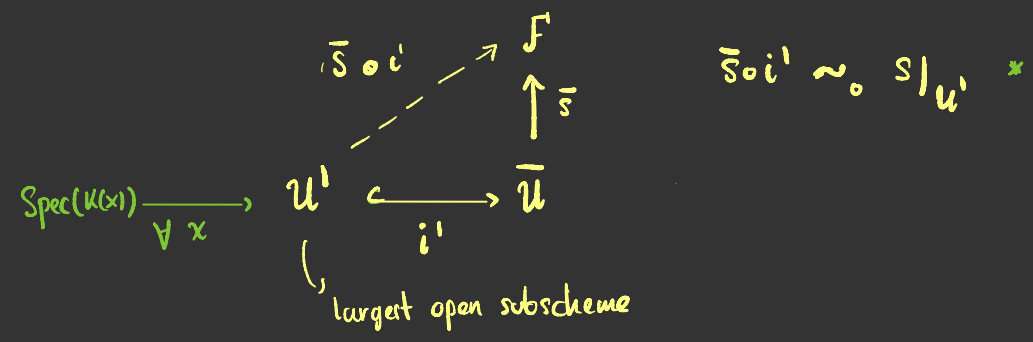 F
s̄ ∘ i'
s̄
s̄ ∘ i' ~₀ s|_U' *
Spec(K(x))
∀ x
U'
Ū
i'
largest open subscheme